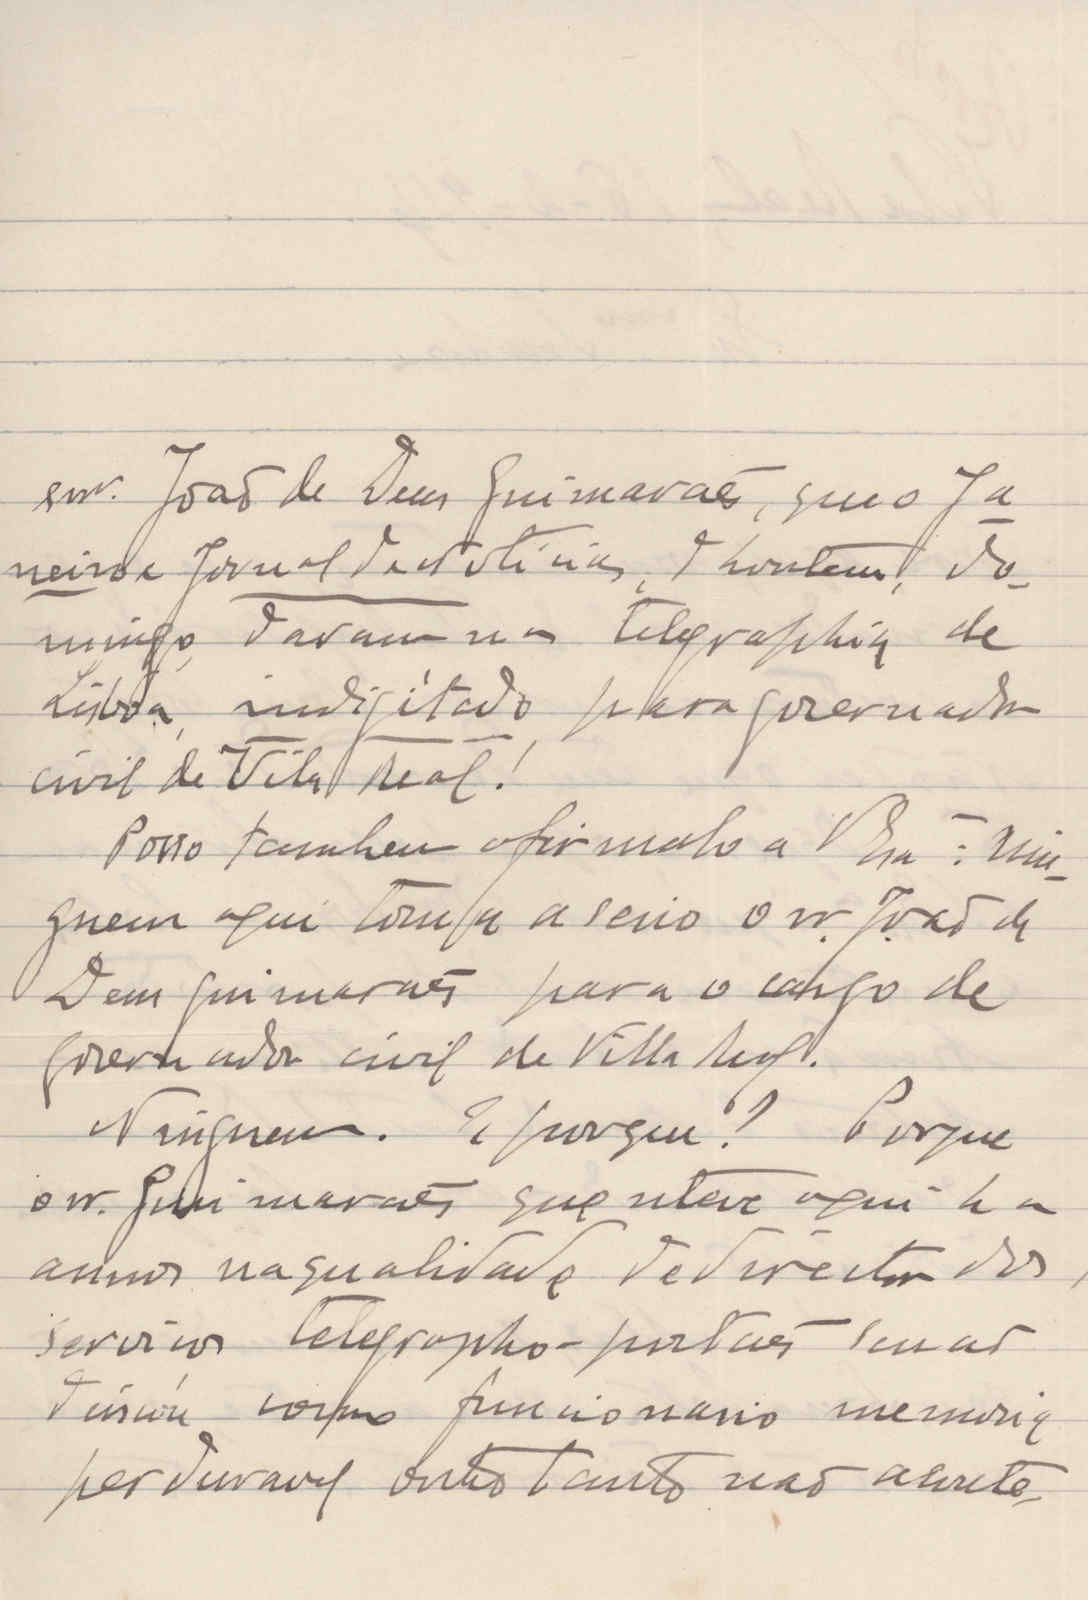 snr. João de Deus Guimarães, que o Ja
neiro e Jornal de Noticias, d'hontem, do-
mingo, davam na telegraphia de
Lisboa, indigitado para governador
civil de Vila Real!
Posso tambem afirmalo a V. Exa: Nin-
guem aqui toma a serio o sr. João de
Deus Guimarães para o cargo de
governador civil de Villa Real.
Ninguem. E porque? Porque
o sr. Guimarães que esteve aqui ha
annos na qualidade de director dos
serviços telegrapho-postaes se não
deixou como funcionario memoria
perduravel outro tanto não aconte-